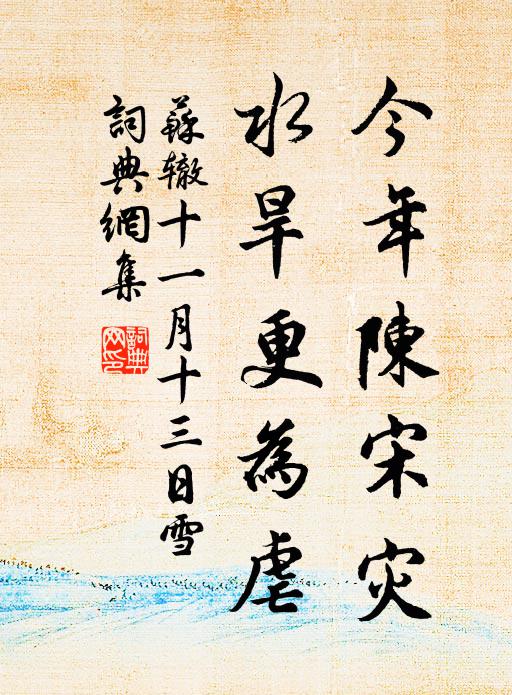 今年陳宋灾
水旱更為虐
蘇辙十一月十三日雪
詞典網集
詞典
网印